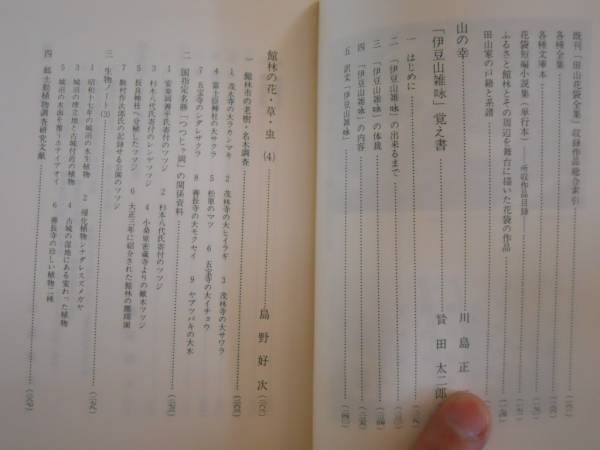 既刊『田山花袋全集』収録作品総合索引
各種全集
各種文庫本
花袋短編小説集(単行本) 所収作品目録
ふるさと館林とその周辺を舞台に描いた花袋の作品
田山家の戸籍と系譜
山の幸 川島正一
「伊豆山雑咏」覚え書 田太二郎
一 はじめに
二 「伊豆山雑咏」の出来るまで
三 「伊豆山雑咏」の体裁
四 「伊豆山雑咏」の内容
五 訳文「伊豆山雑咏」
館林の花・草・虫(4) 島野好次
一 館林市の老樹・名木調査
1 茂林寺の大ラカンマキ 2 茂林寺の大ヒイラギ 3 茂林寺の大サワラ
4 富士嶽神社の大サクラ 5 松原のマツ 6 五宝寺の大イチョウ
7 五宝寺のシダレザクラ 8 善長寺の大モクセイ 9 ヤブツバキの大木
二 国指定名勝「つつじヶ岡」の関係資料
1 安楽岡与平氏寄付のツツジ 2 杉本八代氏寄付のツツジ
3 杉本八代氏寄付のレンゲツツジ 4 小桑原密蔵寺よりの献木ツツジ
5 長良神社へ分植したツツジ 6 大正三年に紹介された館林の躑躅園
7 駒村竹次郎氏の記録せる公園のツツジ
三 生物ノート(3)
1 昭和十七年の城沼の水生植物 2 帰化植物シナダレスズメガヤ
3 城沼の埋立地と古城付近の植物 4 古城の湿地にある変わった植物
5 城沼の水面を覆うホテイアオイ 6 善長寺の珍しい植物二種
四 郷土動植物調査研究文献